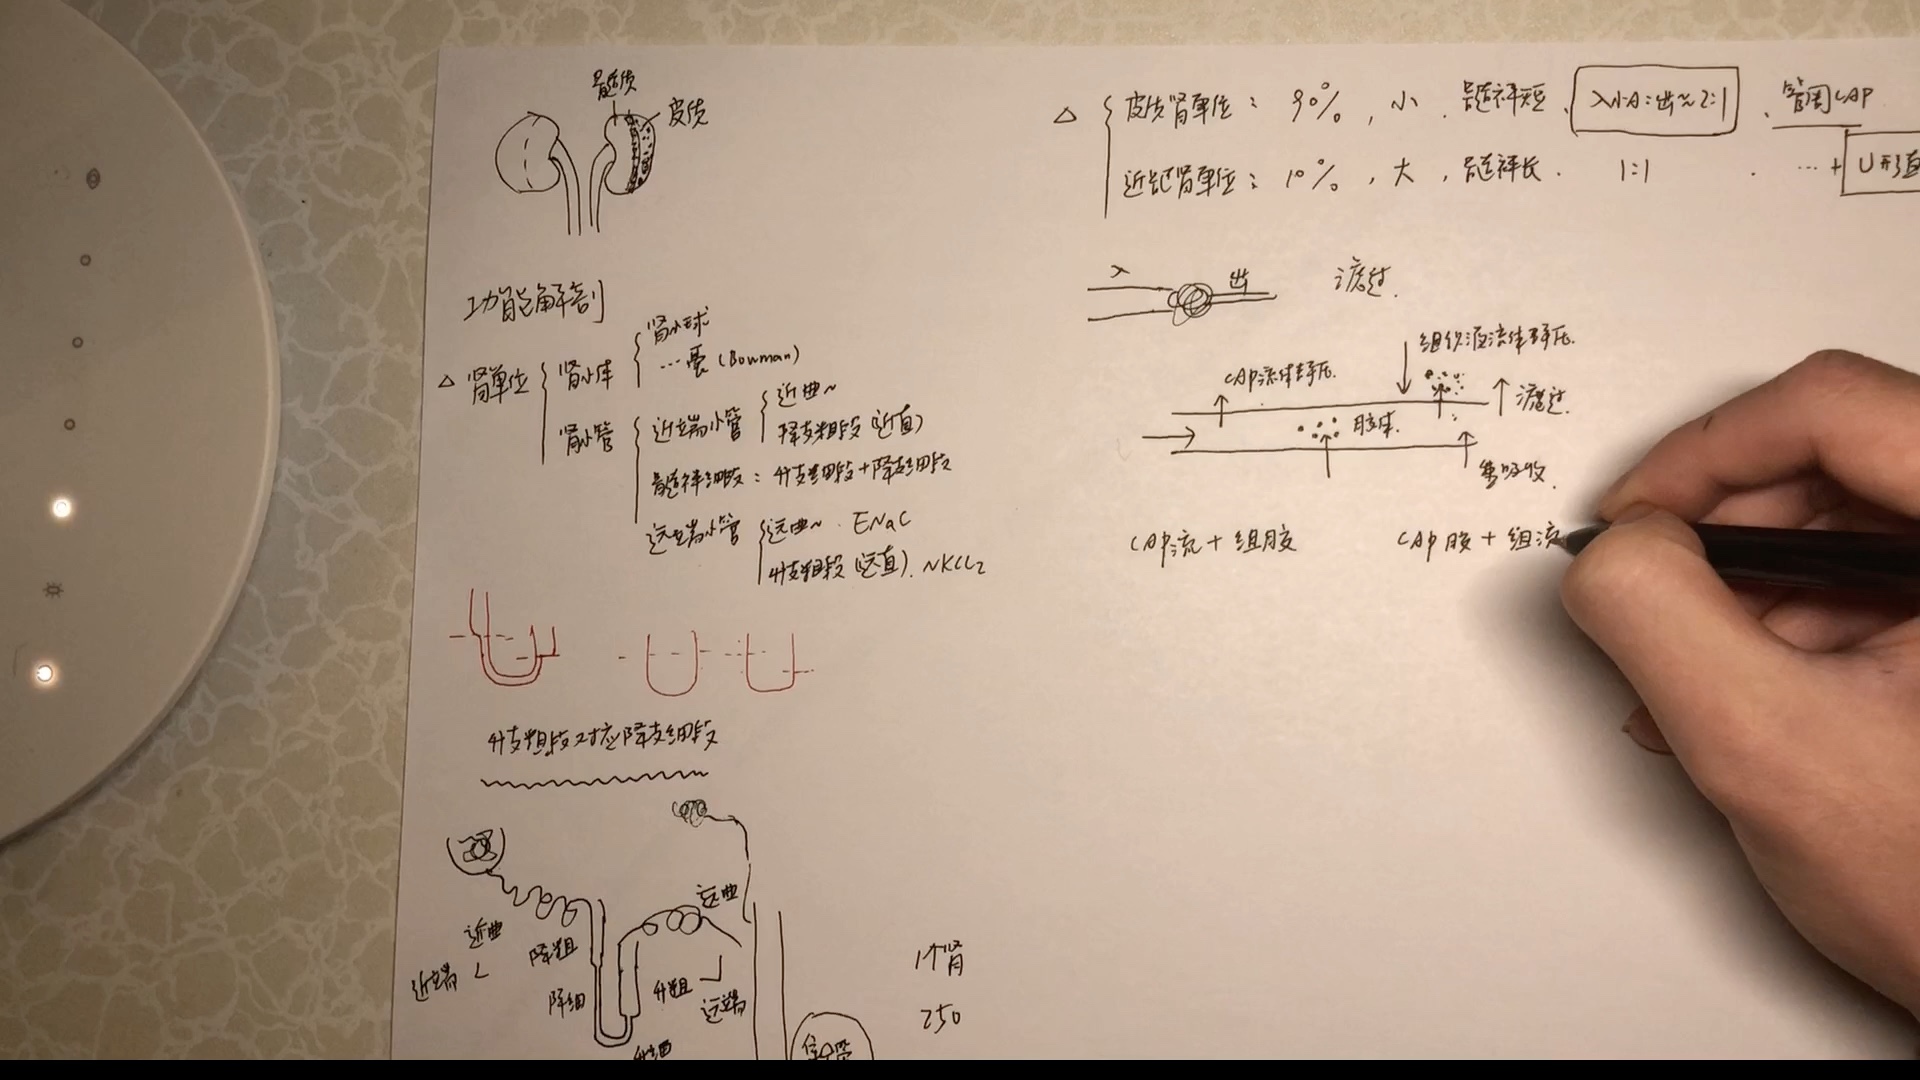 髓质
皮质
功能解剖
△ 肾单位
肾小体
肾小球
…囊(Bowman)
肾小管
近端小管
近曲~
降支粗段(近直)
髓袢细段:升支细段+降支细段
远端小管
远曲~. ENaC
升支粗段(远直). NKCC2
升支粗段对应降支细段
近曲
近端
降粗
降细
升细
升粗
远曲
远端
集合管
1个肾
250
△ 皮质肾单位: 90%, 小. 髓袢短. 入小A:出≈2:1 . 管周CAP
近髓肾单位: 10%, 大, 髓袢长. 1:1 . …+ U形直
入
出
滤过.
组织液流体静压.
CAP流体静压.
滤过.
胶体.
重吸收.
CAP流+组胶
CAP胶+组流